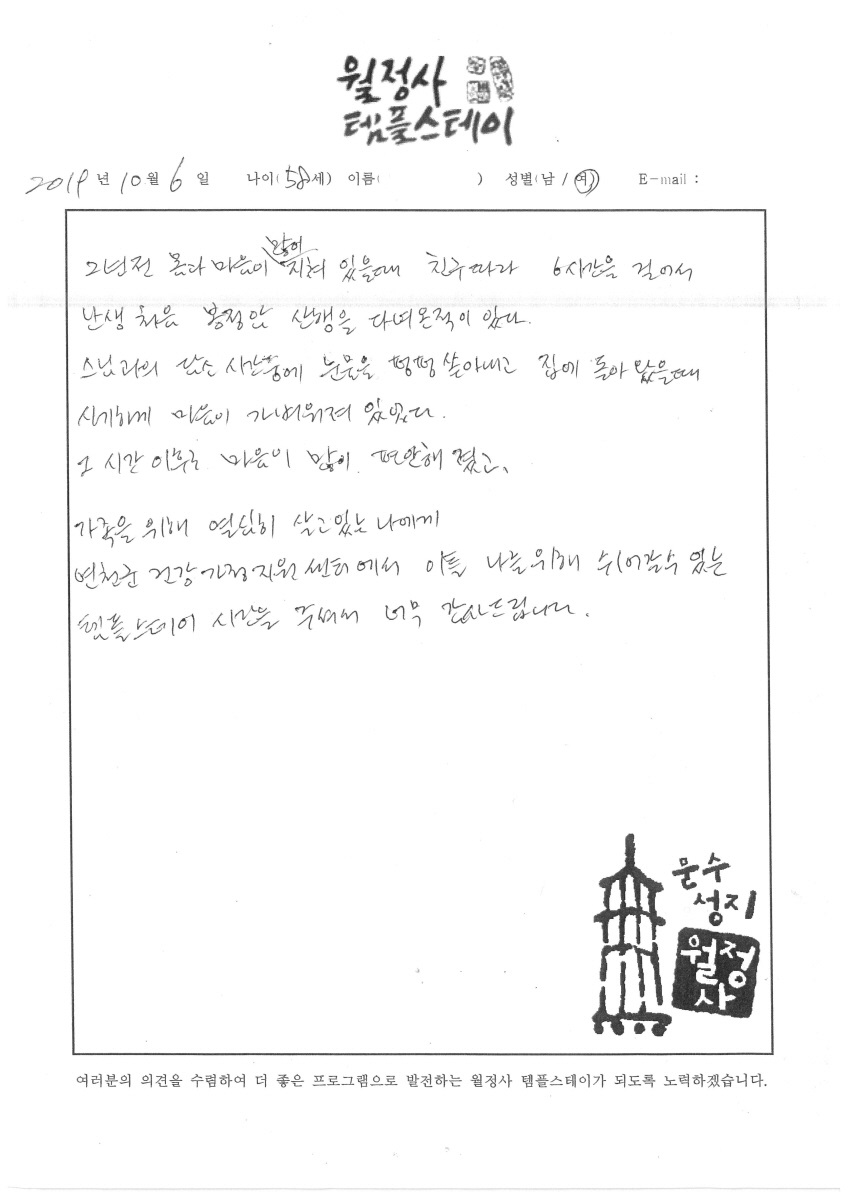 월정사
템플스테이
2019년 10월 6일 나이(58세) 이름( ) 성별(남/여) E-mail :
2년전 몸과 마음이 많이 지쳐 있을때 친구따라 6시간을 걸어서
난생 처음 봉정암 산행을 다녀온적이 있다.
스님과의 담소 시간중에 눈물을 펑펑 쏟아내고 집에 돌아 왔을때
신기하게 마음이 가벼워져 있었다.
그 시간 이후로 마음이 많이 편안해 졌고,
가족을 위해 열심히 살고있는 나에게
건강가정지원센터에서 이틀 나를위해 쉬어갈수 있는
템플스테이 시간을 주셔서 너무 감사드립니다.
문수
성지
월정
사
여러분의 의견을 수렴하여 더 좋은 프로그램으로 발전하는 월정사 템플스테이가 되도록 노력하겠습니다.